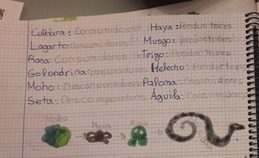 Culebra: Consumidores
Haya: Productores
Lagarto: consumidores
Musgo: productores
Rana: Consumidores
Trigo: Productores
Golondrina: consumidores
Helecho: Productor
Moho: Descomponedores
Paloma: Consumidores
Seta: Descomponedores
Águila: Consumidores